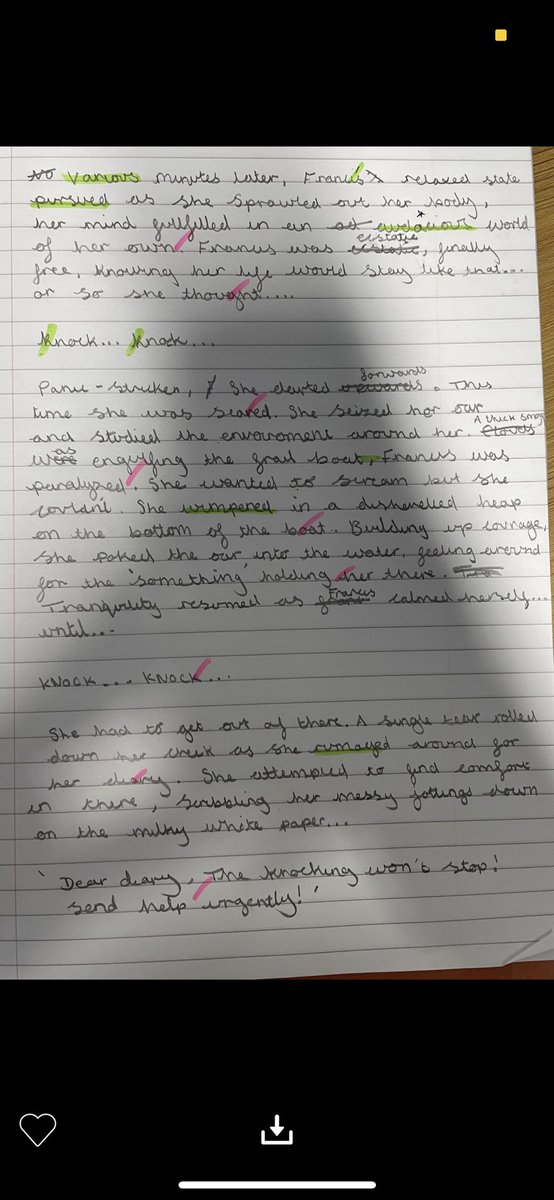 Various minutes later, Francis's relaxed state
pursued as she sprawled out her body,
her mind fulfilled in an audacious world
of her own. Francis was ecstatic, finally
free, knowing her life would stay like that...
or so she thought....
Knock... Knock...
Panic-stricken, She darted forwards. This
time she was scared. She seized her oar
and studied the enviroment around her. A thick smog
was engulfing the frail boat, Francis was
paralyzed. She wanted to scream but she
couldn't. She wimpered in a dishevelled heap
on the bottom of the boat. Building up courage,
she poked the oar into the water, feeling around
for the 'something' holding her there.
Tranquility resumed as Francis calmed herself...
until...
KNOCK.... KNOCK...
She had to get out of there. A single tear rolled
down her cheek as she rumaged around for
her diary. She attempted to find comfort
in there, scribbling her messy jottings down
on the milky white paper...
'Dear diary, The knocking won't stop!
Send help urgently!'